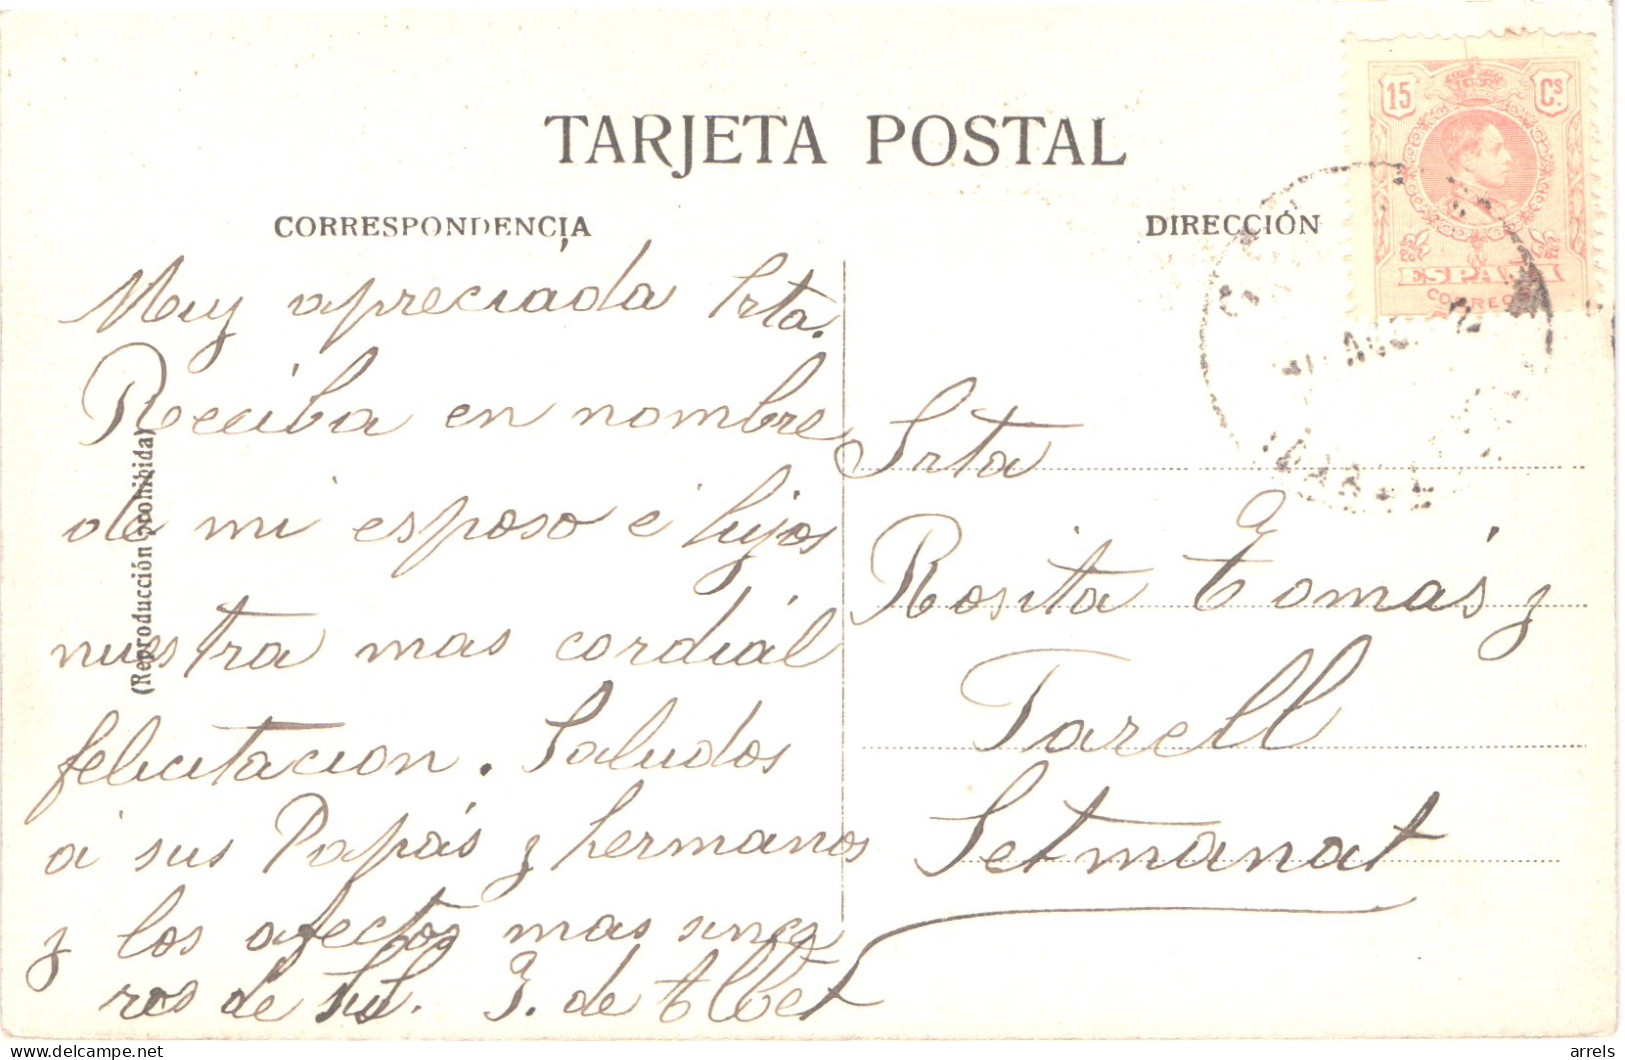 TARJETA POSTAL
CORRESPONDENCIA
DIRECCIÓN
15 Cs.
ESPAÑA
CORREOS
Muy apreciada Srta.
Reciba en nombre
de mi esposo é hijos
nuestra mas cordial
felicitacion. Saludos
a sus Papás y hermanos
y los afectos mas since
ros de su 
J. de Albet
Srta
Rosita Tomás y
Tarell
Setmanat
(Reproducción prohibida)
delcampe.net
arrels